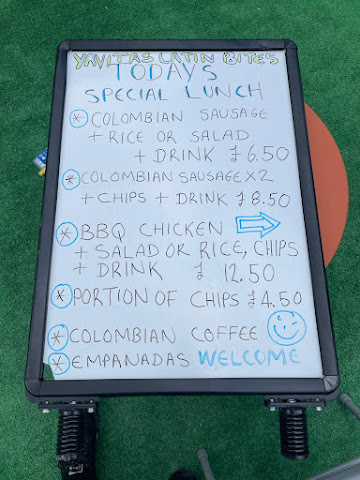 YAYITAS LATIN BITES
TODAYS
SPECIAL LUNCH
* COLOMBIAN SAUSAGE
+ RICE OR SALAD
+ DRINK £ 6.50
* COLOMBIAN SAUSAGE X2
+ CHIPS + DRINK £ 8.50
* BBQ CHICKEN
+ SALAD OR RICE, CHIPS
+ DRINK £ 12.50
* PORTION OF CHIPS £4.50
* COLOMBIAN COFFEE
* EMPANADAS WELCOME